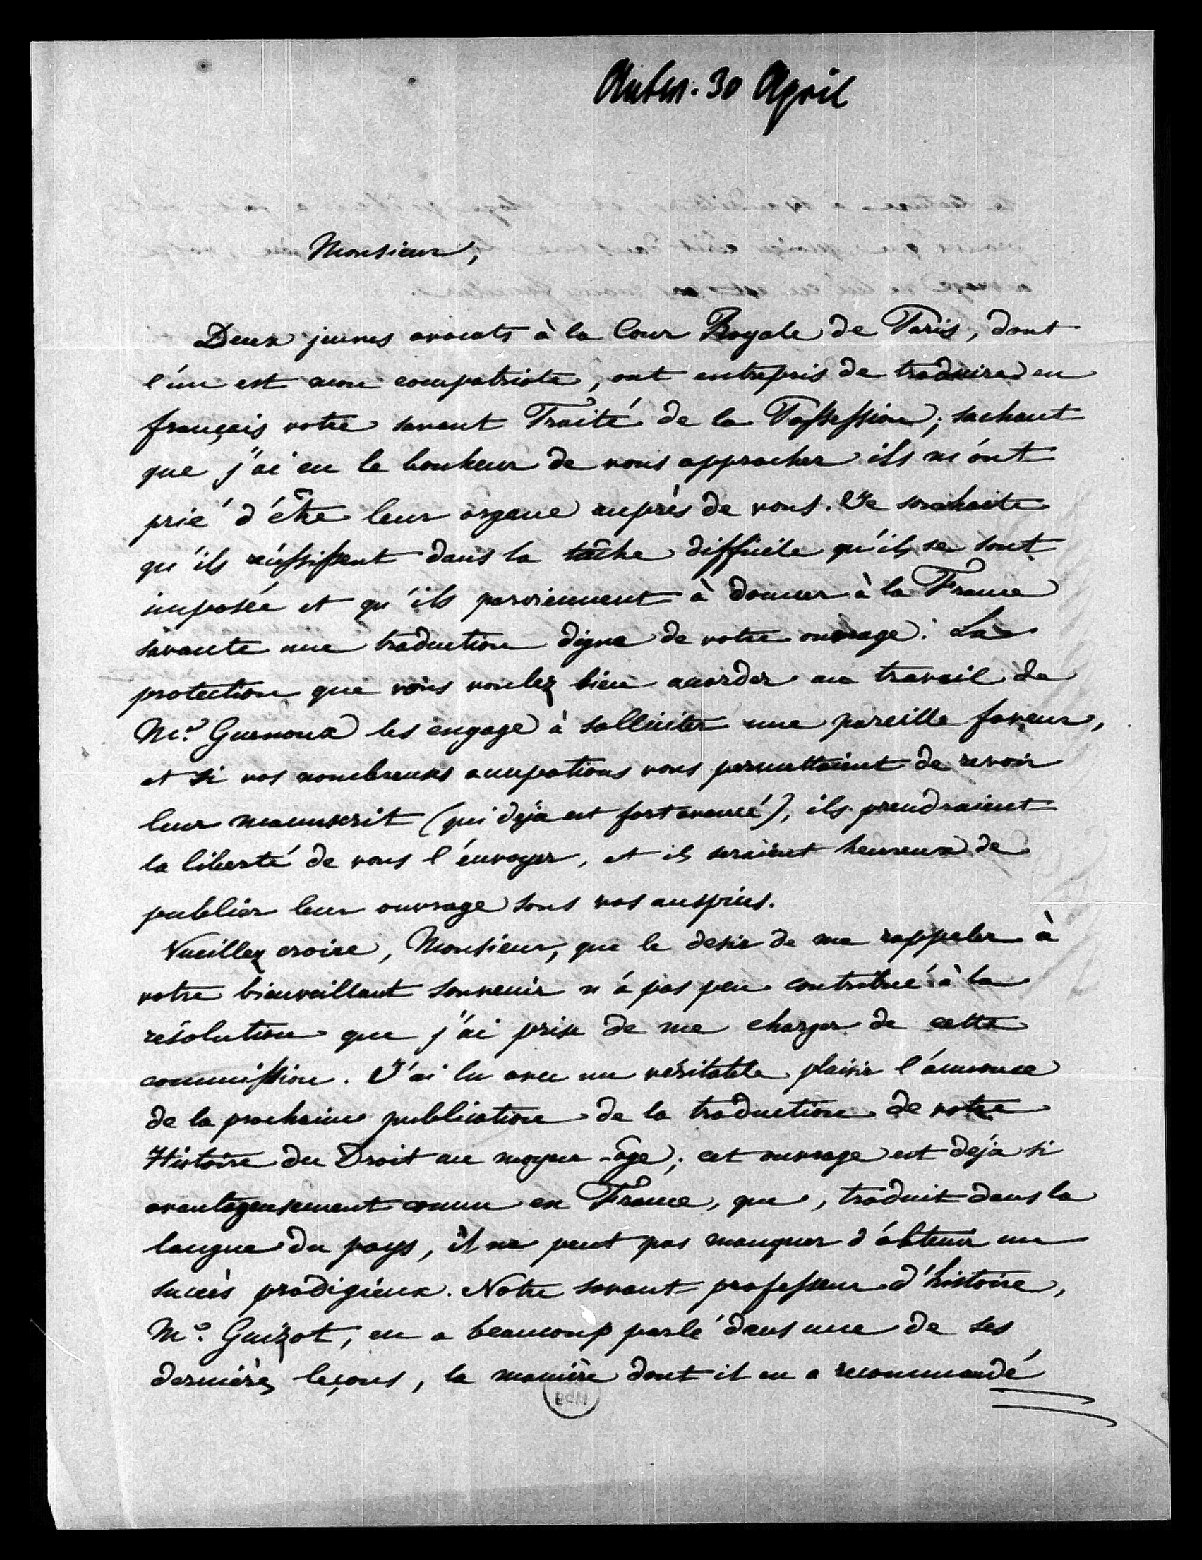 30 April
Monsieur,
Deux jeunes avocats à la Cour Royale de Paris, dont
l'un est mon compatriote, ont entrepris de traduire en
français votre savant Traité de la Possession; sachant
que j'ai eu le bonheur de vous approcher ils m'ont
prié d'être leur organe auprès de vous. Je souhaite
qu'ils réussissent dans la tâche difficile qu'ils se sont
imposée et qu'ils parviennent à donner à la France
savante une traduction digne de votre ouvrage. La
protection que vous voulez bien accorder au travail de
Mr. Guenoux les engage à solliciter une pareille faveur,
et si vos nombreuses occupations vous permettaient de revoir
leur manuscrit (qui déja est fort avancé), ils prendraient
la liberté de vous l'envoyer, et ils seraient heureux de
publier leur ouvrage sous vos auspices.
Vueillez croire, Monsieur, que le desir de me rappeler à
votre bienveillant souvenir n'a pas peu contribué à la
résolution que j'ai prise de me charger de cette
commission. J'ai lu avec un véritable plaisir l'annonce
de la prochaine publication de la traduction de votre
Histoire du Droit au moyen-âge; cet ouvrage est déja si
avantageusement connu en France, que, traduit dans la
langue du pays, il ne peut pas manquer d'obtenir un
succès prodigieux. Notre savant professeur d'histoire,
Mr. Guizot, en a beaucoup parlé dans une de ses
dernières leçons, la manière dont il en a recommandé